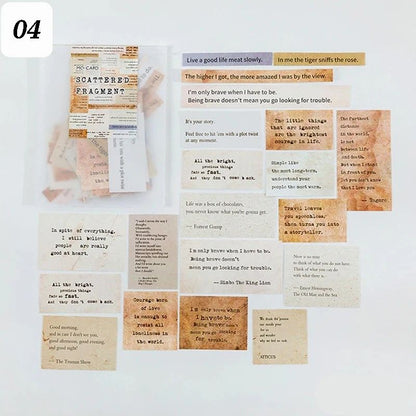 04
MO·CARD
SCATTERED
FRAGMENT
Live a good life meat slowly.
In me the tiger sniffs the rose.
The higher I got, the more amazed I was by the view.
I'm only brave when I have to be.
Being brave doesn't mean you go looking for trouble.
It's your story.
Feel free to hit 'em with a plot twist
at any moment.
The little things
that are ignored
are the brightest
courage in life.
The furthest
distance
in the world,
Is not
between life
and death.
But when I stand
in front of you,
Yet you don't know
that I love you
— Tagore
All the bright,
precious things
fade so fast,
And they don't come back.
Simple like
the most long-term,
understand your
people the most warm.
Life was a box of chocolates,
you never know what you're gonna get.
— Forrest Gump
Travel leaves
you speechless,
then turns you into
a storyteller.
In spite of everything,
I still believe
people are really
good at heart.
I'm only brave when I have to be.
Being brave doesn't
mean you go looking for trouble.
— Simba The King Lion
Now is no time
to think of what you do not have.
Think of what you can
do with what there is
— Ernest Hemingway,
The Old Man and the Sea
All the bright,
precious things
fade so fast,
And they don't come back.
Courage born
of love
is enough to
resist all
loneliness in
the world.
I'm only brave when
I have to be.
Being brave doesn't
mean you go looking
for trouble.
Good morning,
and in case I don't see you,
good afternoon, good evening,
and good night!
— The Truman Show
ATTICUS